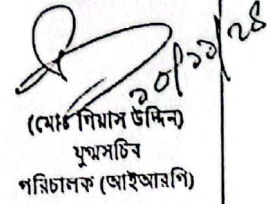 ১০/১০/২৪
(মোঃ গিয়াস উদ্দিন)
যুগ্মসচিব
পরিচালক (আইআরপি)